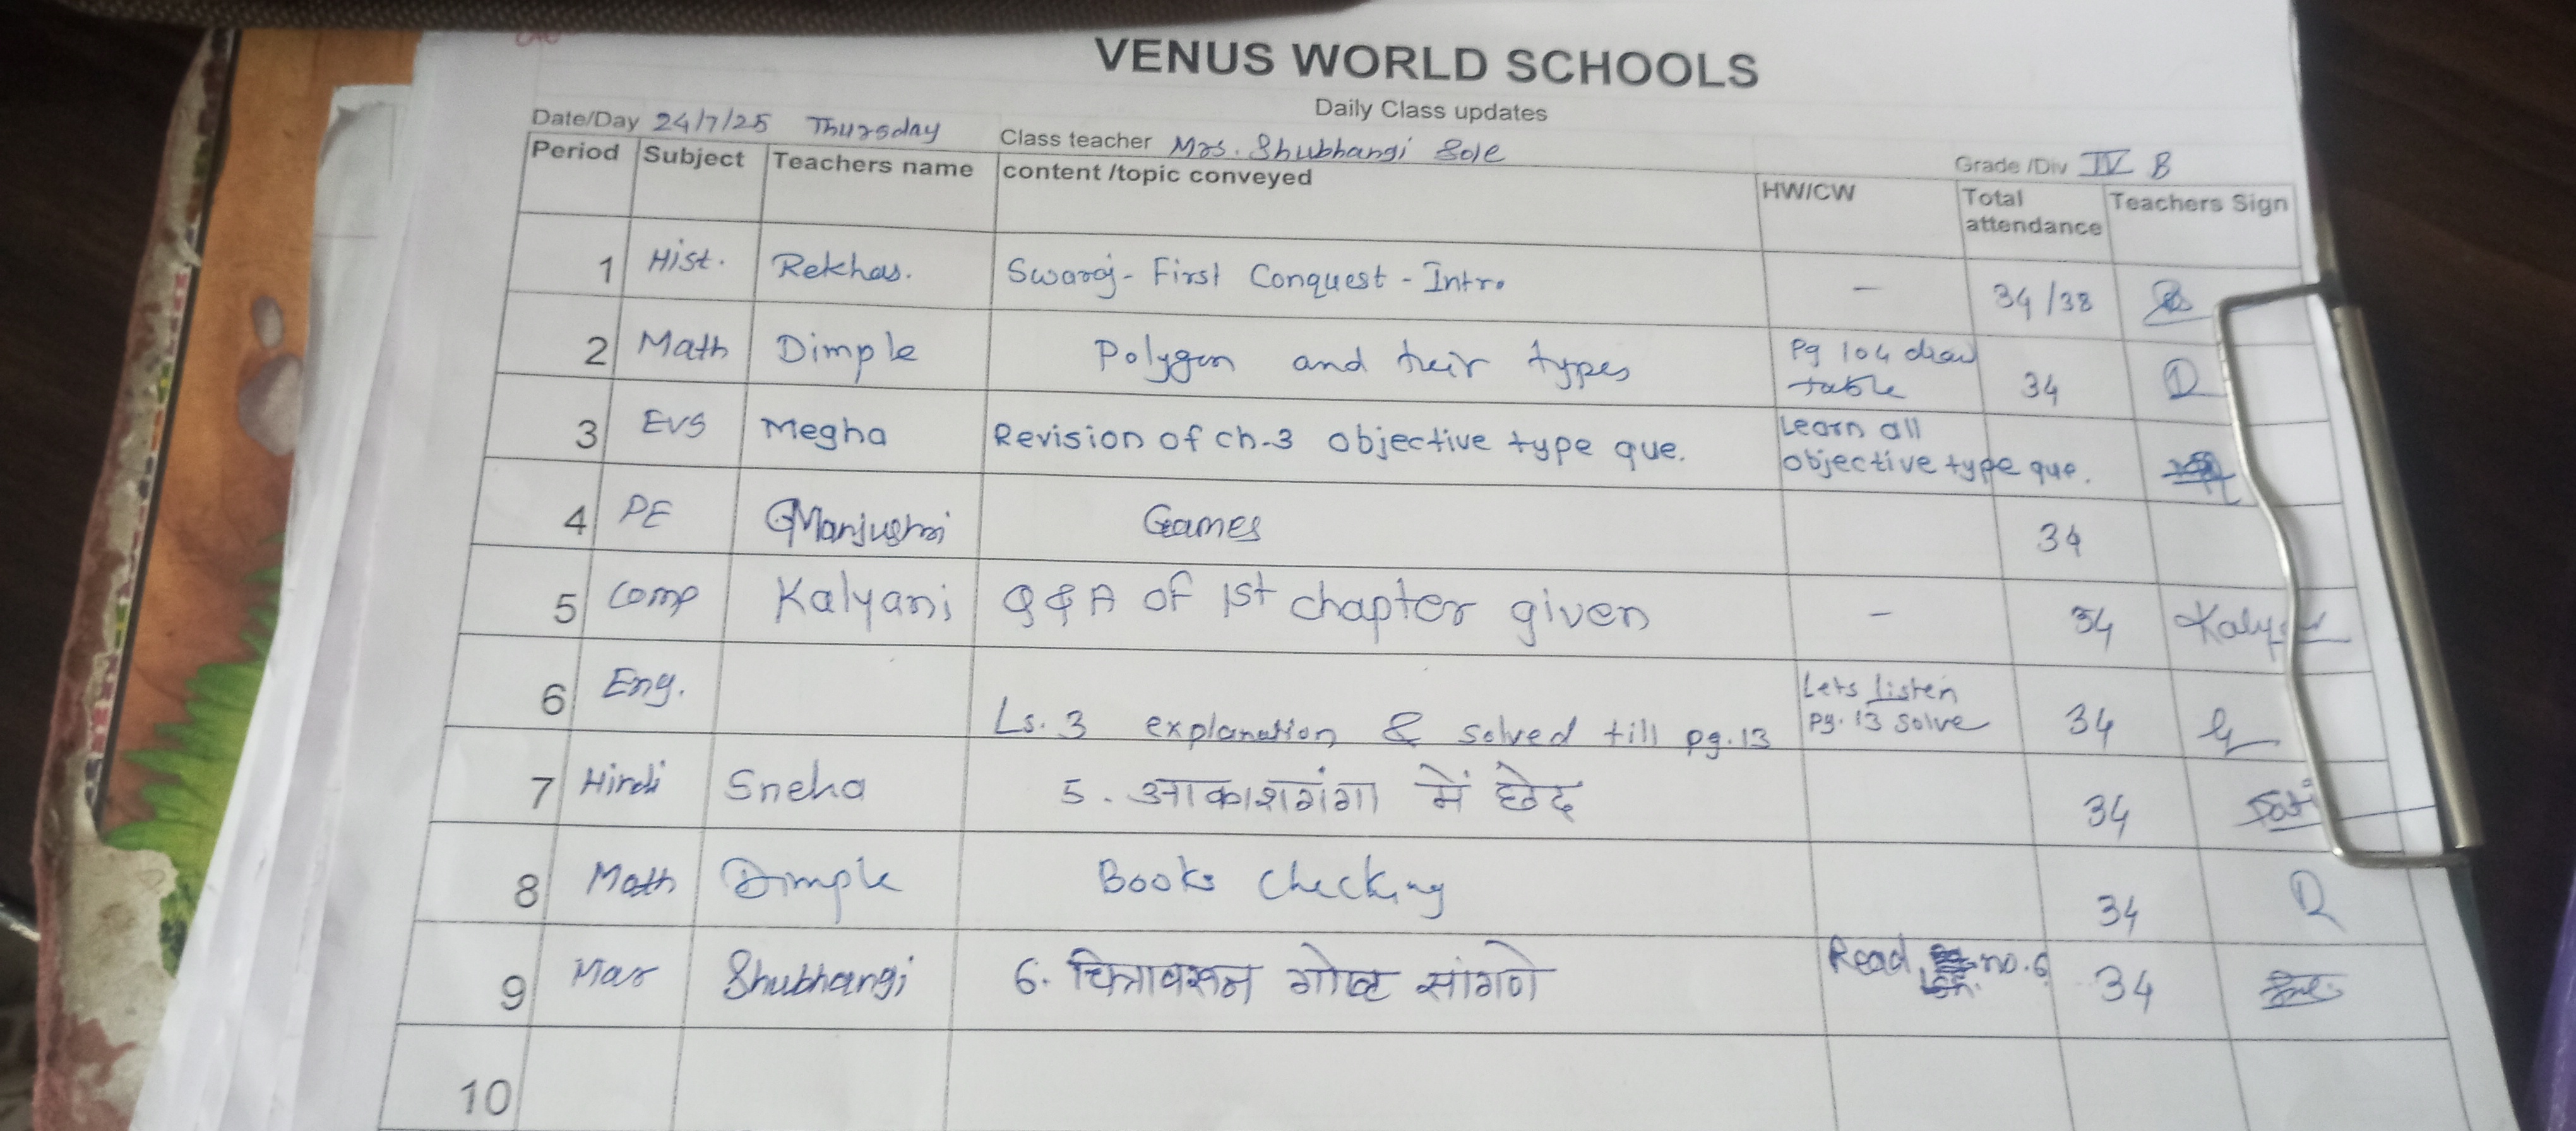 VENUS WORLD SCHOOLS
Daily Class updates
Date/Day 24/7/25 Thursday Class teacher Mrs. Shubhangi Sole Grade /Div IV B
Period Subject Teachers name content /topic conveyed HW/CW Total attendance Teachers Sign
1 Hist. Rekha s. Swaraj - First Conquest - Intro - 34/38
2 Math Dimple Polygon and their types Pg 104 draw table 34 D
3 EVS Megha Revision of ch-3 objective type que. Learn all objective type que.
4 PE Manjushri Games 34
5 Comp Kalyani Q & A of 1st chapter given - 34
6 Eng. Ls. 3 explanation & solved till pg.13 Lets listen pg. 13 solve 34
7 Hindi Sneha 5. आकाशगंगा में छेद 34
8 Math Dimple Books checking 34 D
9 Mar Shubhangi 6. चित्रावरून गोष्ट सांगणे Read no. 6 34
10